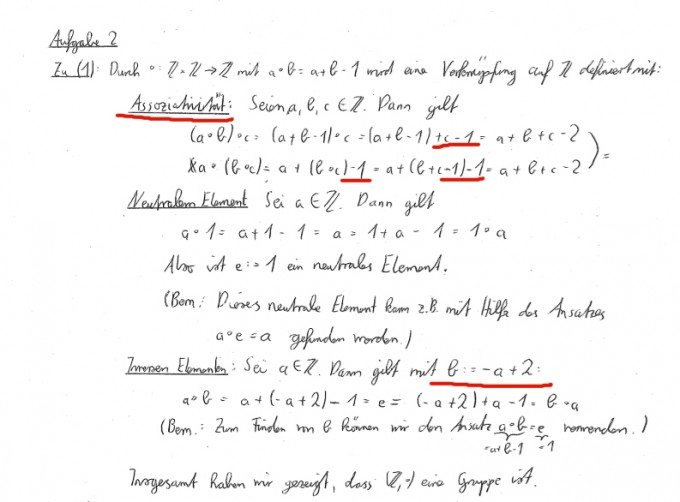 Aufgabe 2
Zu (1): Durch ∘: ℤ × ℤ → ℤ mit a∘b = a+b-1 wird eine Verknüpfung auf ℤ definiert mit:
Assoziativität: Seien a, b, c ∈ ℤ. Dann gilt
(a∘b)∘c = (a+b-1)∘c = (a+b-1)+c-1 = a+b+c-2
a∘(b∘c) = a+(b∘c)-1 = a+(b+c-1)-1 = a+b+c-2 ) =
Neutrales Element Sei a ∈ ℤ. Dann gilt
a∘1 = a+1-1 = a = 1+a-1 = 1∘a
Also ist e := 1 ein neutrales Element.
(Bem.: Dieses neutrale Element kann z.B. mit Hilfe des Ansatzes
a∘e = a gefunden werden.)
Inversen Elementen: Sei a ∈ ℤ. Dann gilt mit b := -a+2:
a∘b = a+(-a+2)-1 = e = (-a+2)+a-1 = b∘a
(Bem.: Zum Finden von b können wir den Ansatz a∘b = e verwenden.)
=a+b-1 =1
Insgesamt haben wir gezeigt, dass (ℤ,∘) eine Gruppe ist.